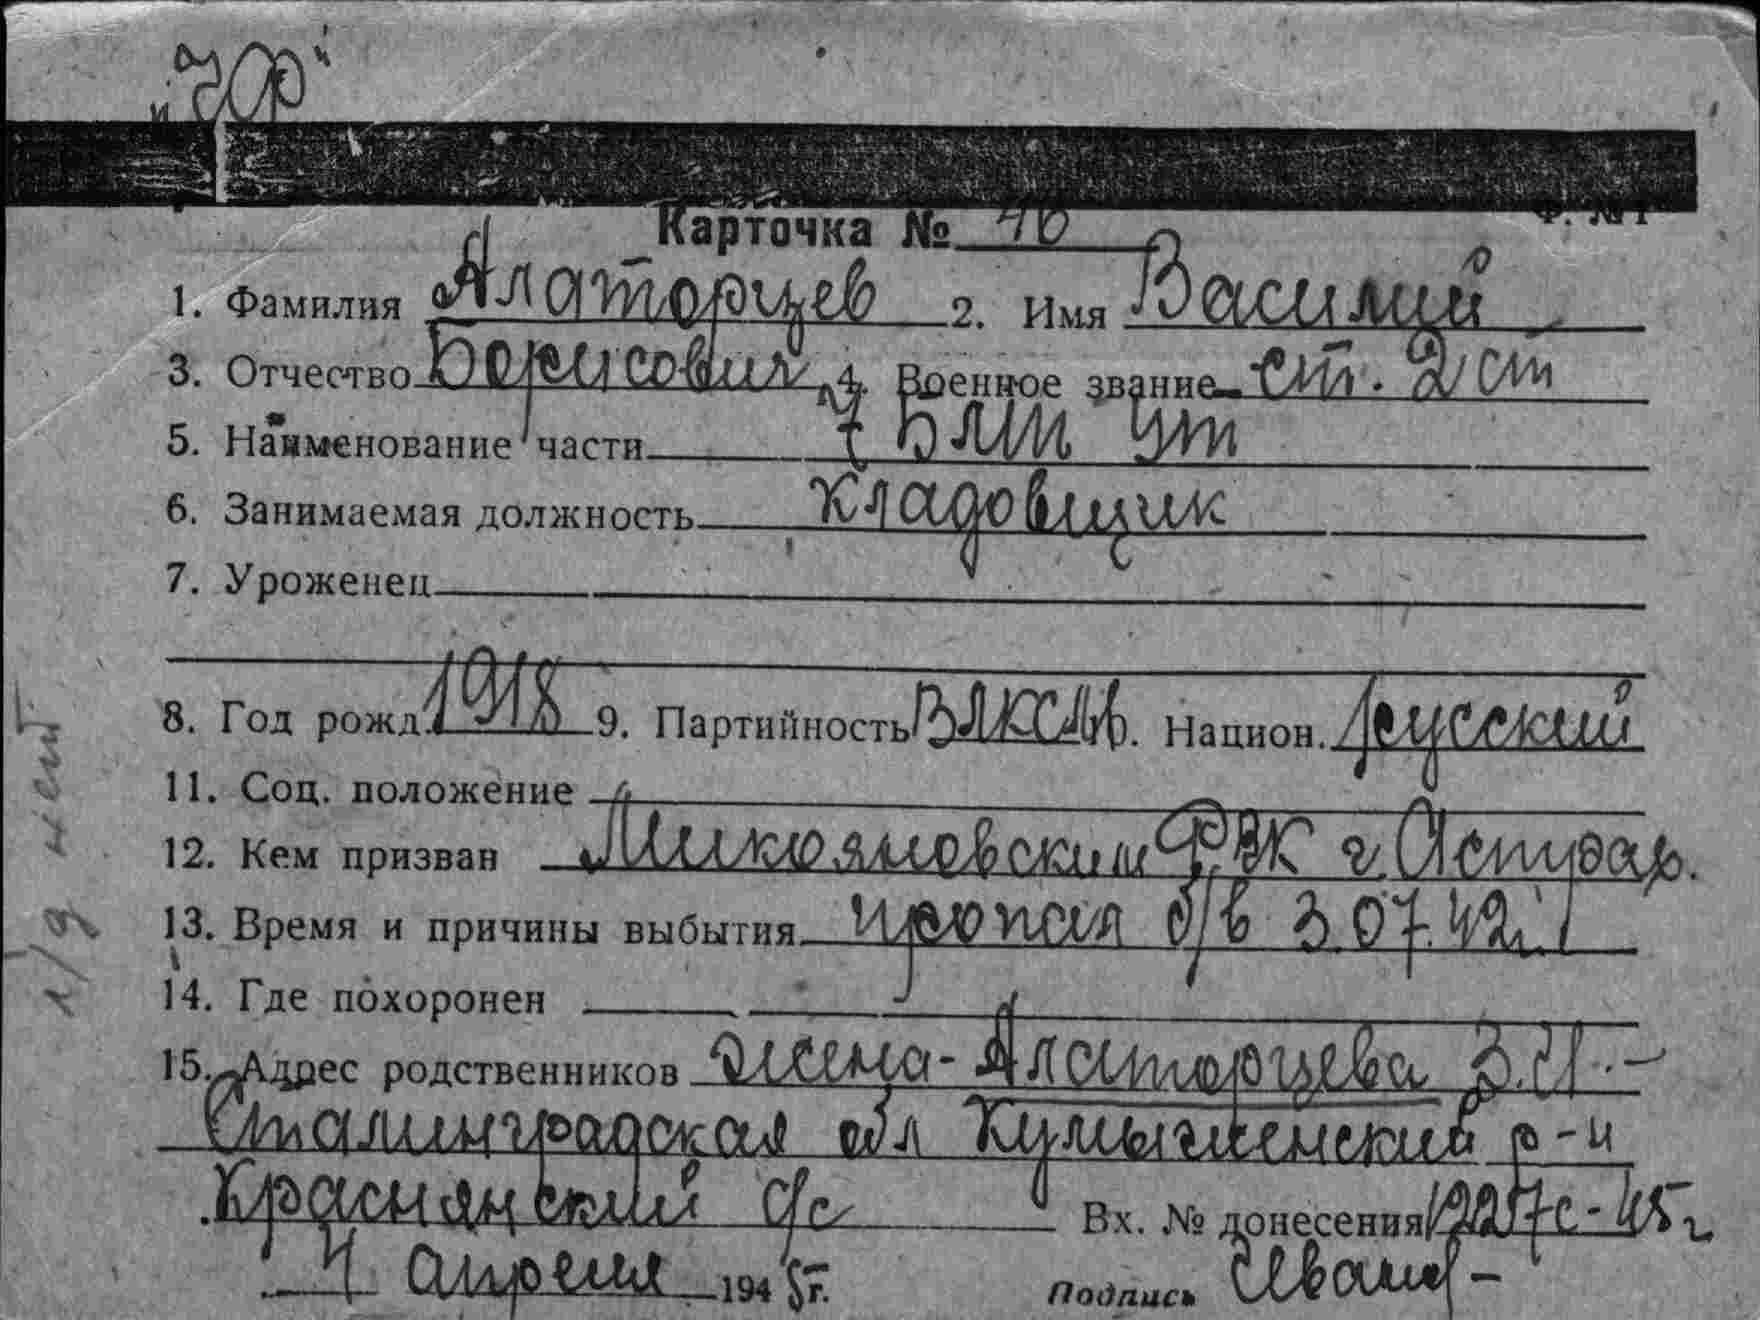 Карточка № 46
1. Фамилия Алаторцев 2. Имя Василий
3. Отчество Борисович 4. Военное звание ст. 2 ст
5. Наименование части
6. Занимаемая должность Кладовщик
7. Уроженец
8. Год рожд. 1918 9. Партийность ВЛКСМ 10. Национ. русский
11. Соц. положение
12. Кем призван Микояновским РВК г. Астрах.
13. Время и причины выбытия пропал б/в 3.07.42г
14. Где похоронен
15. Адрес родственников жена - Алаторцева З.
Сталинградская обл Кумылженский р-н
Краснянский с/с Вх. № донесения 12217с-45г
4 апреля 1945г. Подпись